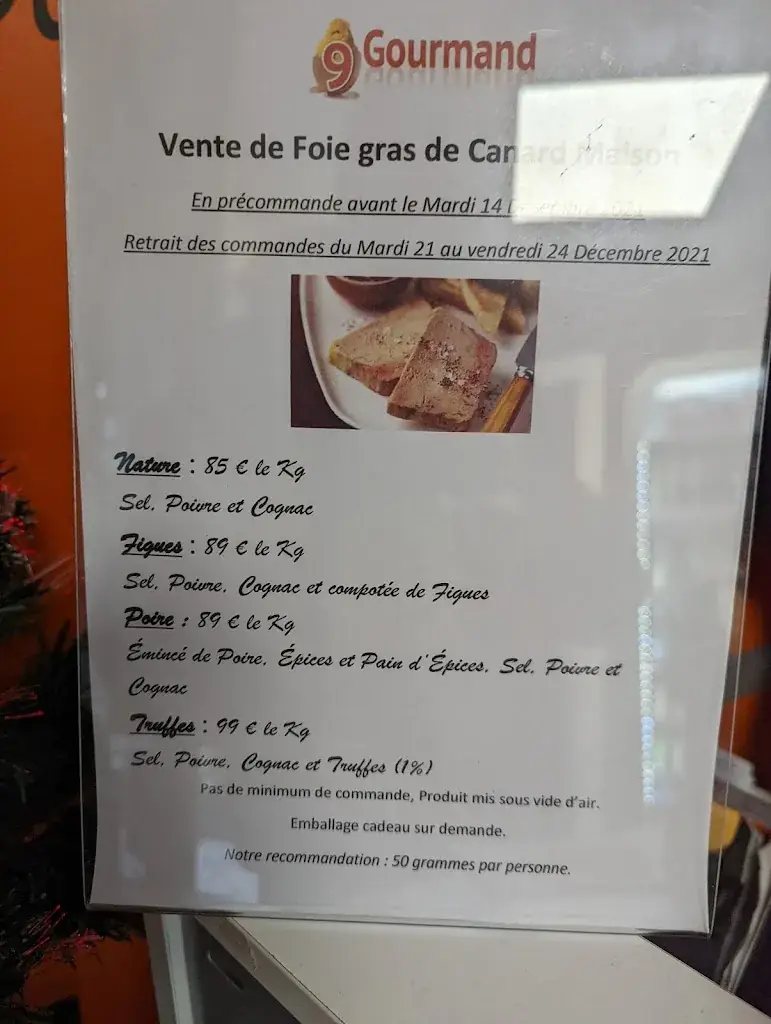 9 Gourmand
Vente de Foie gras de Canard Maison
En précommande avant le Mardi 14 Décembre 2021
Retrait des commandes du Mardi 21 au vendredi 24 Décembre 2021
Nature : 85 € le Kg
Sel, Poivre et Cognac
Figues : 89 € le Kg
Sel, Poivre, Cognac et compotée de Figues
Poire : 89 € le Kg
Émincé de Poire, Épices et Pain d'Épices, Sel, Poivre et
Cognac
Truffes : 99 € le Kg
Sel, Poivre, Cognac et Truffes (1%)
Pas de minimum de commande, Produit mis sous vide d'air.
Emballage cadeau sur demande.
Notre recommandation : 50 grammes par personne.